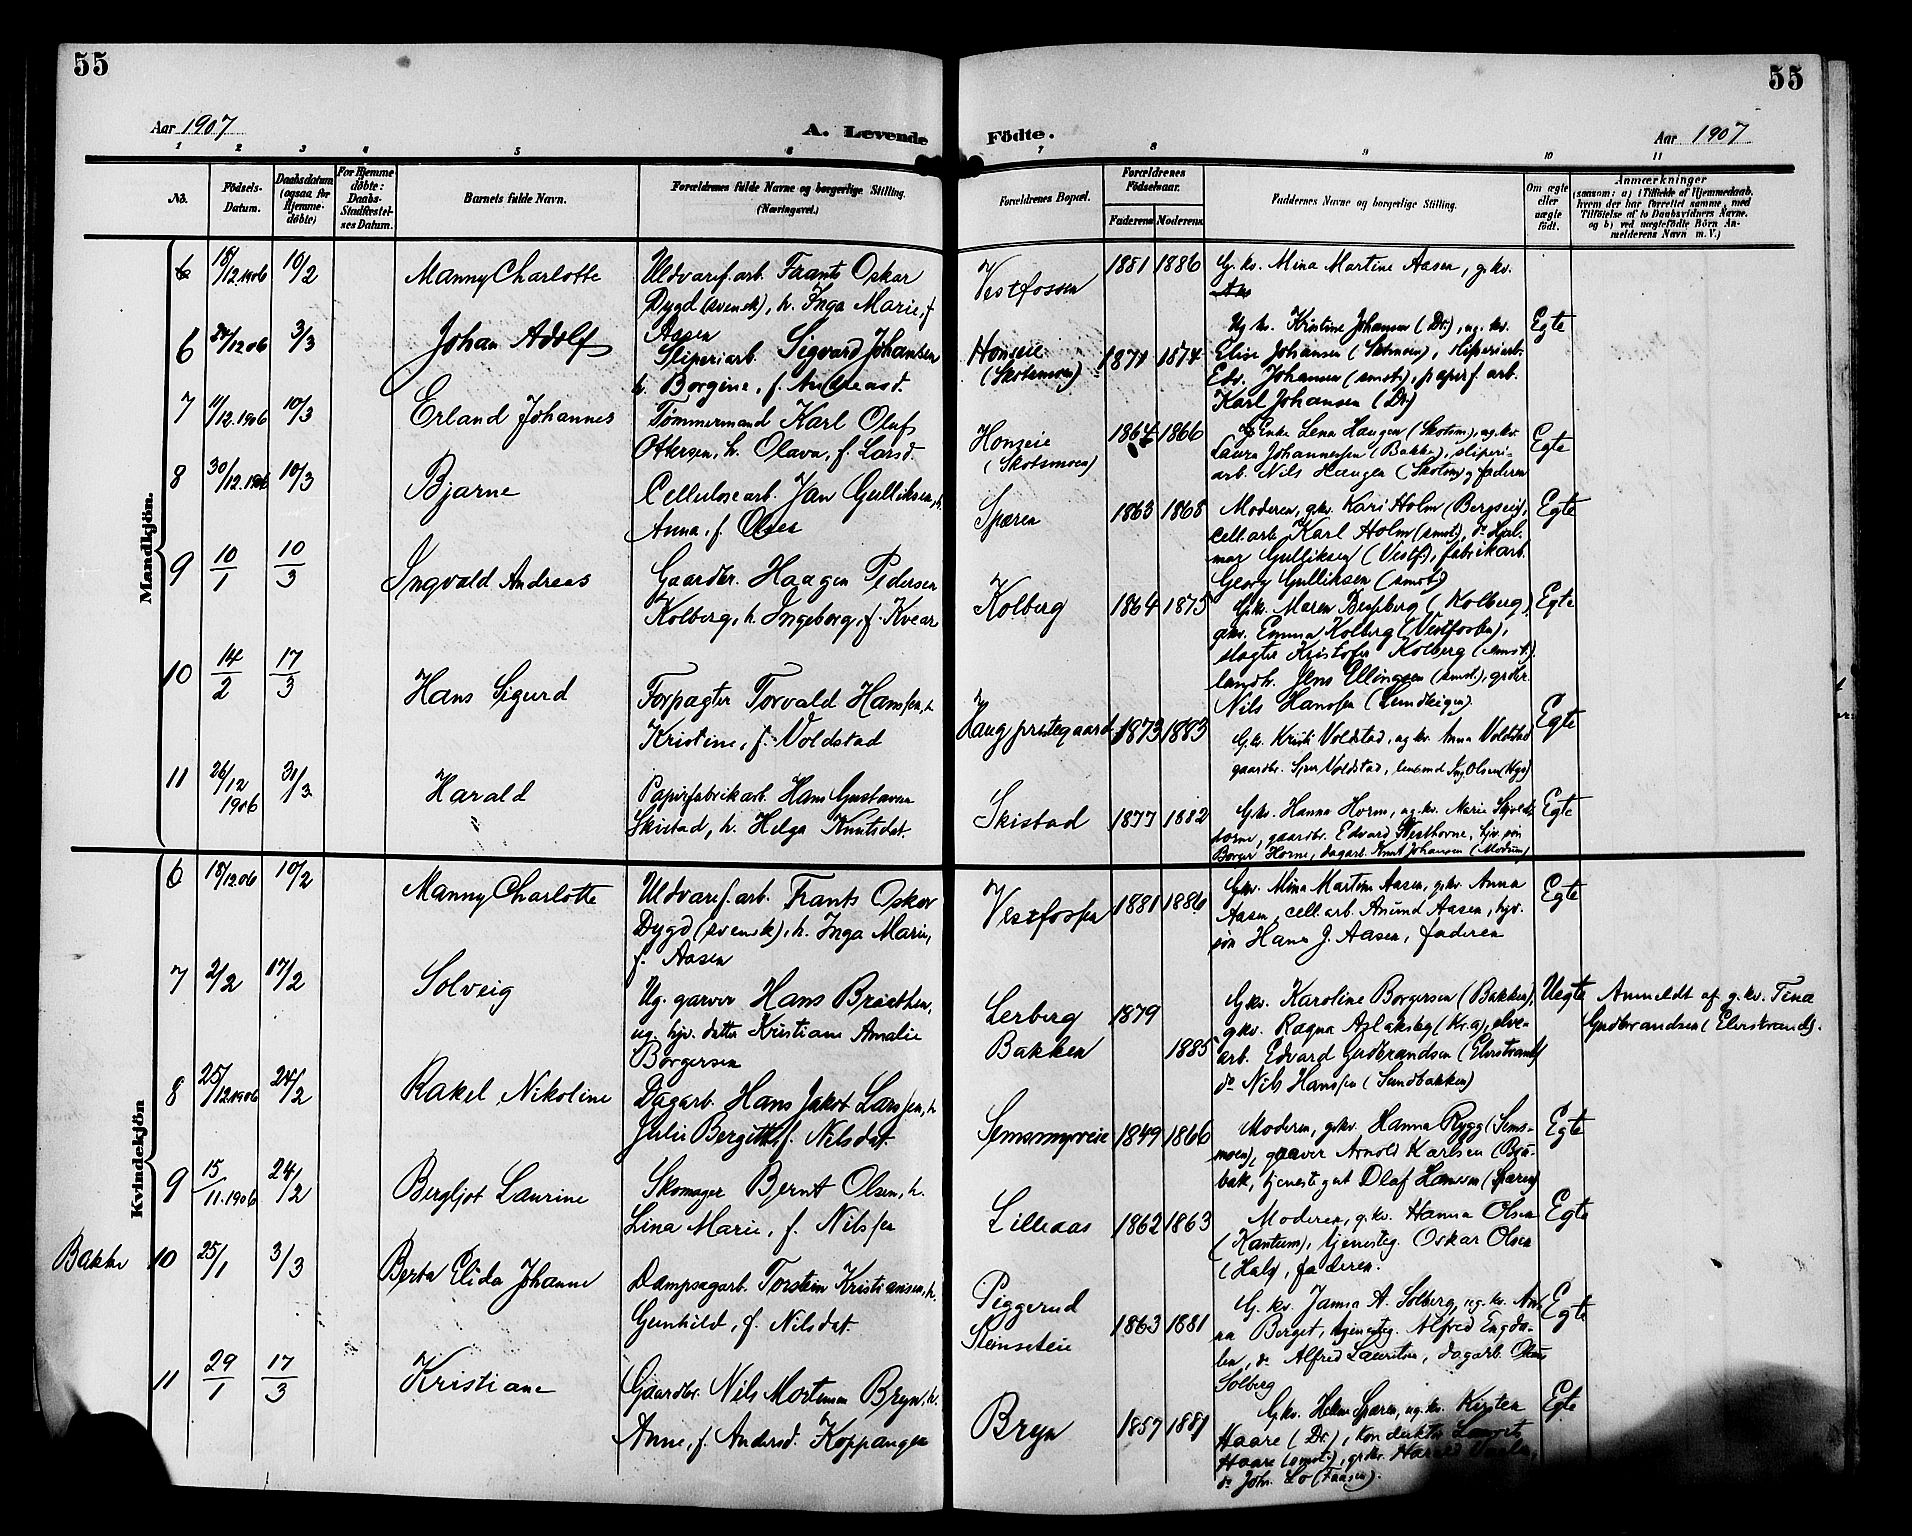 55
55
Aar 1907
A. Levende
Födte.
Aar 1907
1 2 3 4 5 6 7 8 9 10 11
No.
Födsels-Datum.
Daabsdatum (ogsaa for Hjemmedöbte)
For Hjemmedöbte: Daabs-Stadfæstelses Datum.
Barnets fulde Navn.
Forældrenes fulde Navne og borgerlige Stilling. (Næringsvei.)
Forældrenes Bopæl.
Forældrenes Födselsaar.
Faderens
Moderens
Faddernes Navne og borgerlige Stilling.
Om ægte eller uægte födt.
Anmærkninger
(saasom: a) i Tilfælde af Hjemmedaab,
hvem der har forrettet samme, med
Tilföielse af to Daabsvidners Navne.
og b) ved uægtefödte Börn An-
melderens Navn m. V.)
Mandkjön.
6 18/12.1906 10/2 Manny Charlotte
Uldvaref.arb. Frants Oskar
Dygd (svensk), h. Inga Marie, f.
Aasen
Vestfossen 1881 1886
G.kv. Mina Martine Aasen, g.kv.
6 3/3 Johan Adolf
Sliperiarb. Sigvard Johansen
h. Borgine, f. Andreasd.
Honseie
(Skotsmoen) 1871 1874
Ug. kv. Kristine Johansen (Dr.), ug. kv.
Elise Johansen (Skotsmoen), sliperiarb.
Edv. Johansen (smst.), papirf.arb.
Karl Johansen (Dr.)
Egte
7 11/12.1906 10/3 Erland Johannes
Tømmermand Karl Oluf
Ottersen, h. Olava, f. Larsd.
Honseie
(Skotsmoen) 1864 1866
Enke Lena Haugen (Skotsm), ug.kv.
Laura Johannessen (Bakke), sliperi-
arb. Nils Haugen (Skotsm) og faderen
Egte
8 30/12.1906 10/3 Bjarne
Cellulosearb. Jan Gulliksen, h.
Anna, f. Olsen
Spæren 1863 1868
Moderen, gkv. Kari Holm (Bergseie),
cell.arb. Karl Holm (smst), do Hjal-
mar Gulliksen (Vestf.), fabrikarb.
Georg Gulliksen (smst.)
Egte
9 10/1 10/3 Ingvald Andreas
Gaardbr. Haagen Pedersen
Kolberg, h. Ingeborg, f. Kvear
Kolberg 1864 1875
G.kv. Maren Besseberg (Kolberg),
gkv. Emma Kolberg (Vestfossen),
slagter Kristofer Kolberg (smst.)
landh. Jens Ellingsen (smst.), grdbr.
Nils Hanssen
Egte
10 14/2 17/3 Hans Sigurd
Forpagter Torvald Hanssen, h.
Kristine, f. Voldstad
Haug prestegaard 1873 1883
G.kv. Voldstad, ug.kv. Anna Voldstad
gaardbr. Voldstad, Olsen
Egte
11 26/12 1906 31/3 Harald
Papirfabrikarb. Hans Gustavsen
Skistad, h. Helga Knutsdat.
Skistad 1877 1882
G.kv. Hanna Horne, ug.kv. Marie
horne, gaardbr. Edvard Vesthorne, hjv. søn
Borger Horne, dagarb. Knut Johansen (Modum)
Egte
Kvindekjön
6 18/12.06 10/2 Manny Charlotte
Uldvaref.arb. Frants Oskar
Dygd (svensk), h. Inga Marie,
f. Aasen
Vestfossen 1881 1886
Gkv. Mina Martine Aasen, g.kv. Anna
Aasen, cell.arb. Anund Aasen, hjv.
søn Hans J. Aasen, faderen
Egte
7 2/2 17/2 Solveig
Ug. garver Hans Braathen,
ug. hjv. datter Kristiane Amalie
Borgersen
Lerberg 1879
Bakken 1885
Gkv. Karoline Borgersen (Bakken),
gkv. Ragna Aslaksby (Kr.a), elve-
arb. Edvard Gudbrandsen (Elvestrand)
do Nils Hanssen (Sundbakken)
Uegte
Anmeldt af g.kv. Tina
Gudbrandsen (Elvestrand).
8 25/12.1906 24/2 Rakel Nikoline
Dagarb. Hans Jakob Larssen, h.
Julie Bergitte f. Nilsdat.
Semsmyreie 1849 1866
Moderen, gkv. Hanna Rygg (Sems-
moen), garver Arnold Karlsen
bak, tjenestegut Olaf Hanssen (Spæren)
Egte
9 15/11.1906 24/2 Bergljot Laurine
Skomager Bernt Olsen, h.
Lina Marie, f. Nilssen
Lilleaas 1862 1863
Moderen, g.kv. Hanna Olsen
tjenesteg. Oskar Olsen
faderen.
Egte
Bakke 10 25/1 3/3 Berta Elida Johanne
Dampsagarb. Torstein Kristiansen, h.
Gunhild, f. Nilsdat.
Piggerud
1863 1881
G.kv. Janna A. Solberg, ug.kv. An-
na Berget, tjenesteg. Alfred Engda-
len, do Alfred Lauritsen, dagarb.
Solberg
Egte
11 29/1 17/3 Kristiane
Gaardbr. Nils Mortensen Bryn, h.
Anne, f. Andersd. Koppangen
Bryn 1857 1881
Gkv. Helene Spæren, ug.kv. Kirsten
Haare (Dr.), konduktør Laurits
Haare (smst.), grdbr. Harald
do Joh. Lo
Egte